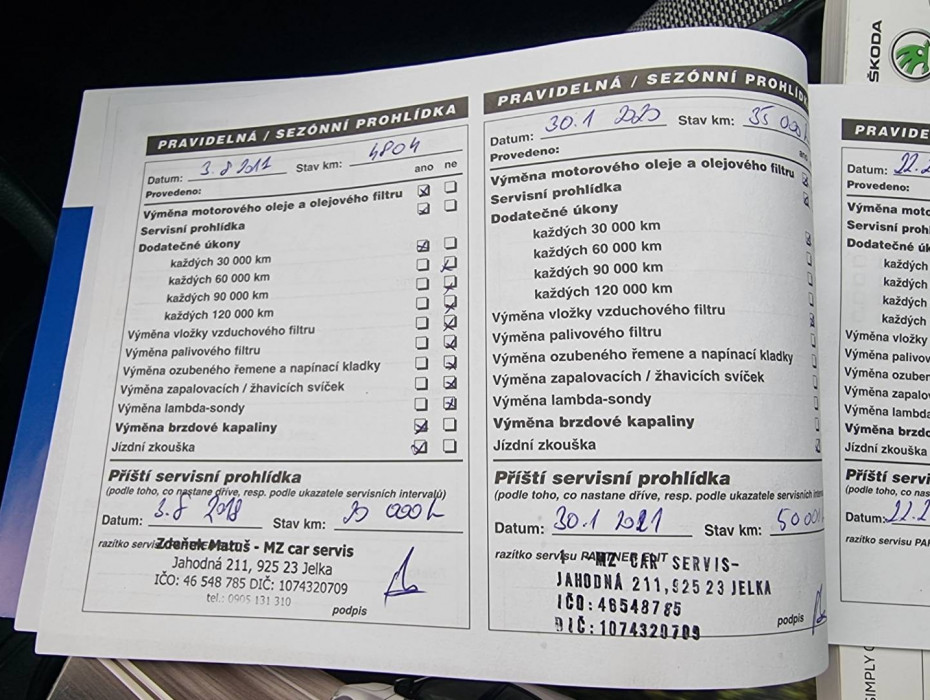 PRAVIDELNÁ / SEZÓNNÍ PROHLÍDKA
Datum: 3. 8 Stav km: 4804
Provedeno: ano ne
Výměna motorového oleje a olejového filtru
Servisní prohlídka
Dodatečné úkony
každých 30 000 km
každých 60 000 km
každých 90 000 km
každých 120 000 km
Výměna vložky vzduchového filtru
Výměna palivového filtru
Výměna ozubeného řemene a napínací kladky
Výměna zapalovacích / žhavicích svíček
Výměna lambda-sondy
Výměna brzdové kapaliny
Jízdní zkouška
Příští servisní prohlídka
(podle toho, co nastane dříve, resp. podle ukazatele servisních intervalů)
Datum: 3. 8 2018 Stav km: 000
razítko servisu Zdeněk Matuš - MZ car servis
Jahodná 211, 925 23 Jelka
IČO: 46 548 785 DIČ: 1074320709
tel.: 0905 131 310
podpis
PRAVIDELNÁ / SEZÓNNÍ PROHLÍD
Datum: 30.1 2020 Stav km: 35 000
Provedeno:
Výměna motorového oleje a olejového filtru
Servisní prohlídka
Dodatečné úkony
každých 30 000 km
každých 60 000 km
každých 90 000 km
každých 120 000 km
Výměna vložky vzduchového filtru
Výměna palivového filtru
Výměna ozubeného řemene a napínací kladky
Výměna zapalovacích / žhavicích svíček
Výměna lambda-sondy
Výměna brzdové kapaliny
Jízdní zkouška
Příští servisní prohlídka
(podle toho, co nastane dříve, resp. podle ukazatele servisních
Datum: 30.1 2021 Stav km: 5000
razítko servisu
MZ CAR SERVIS-
JAHODNÁ 211,925 23 JELKA
IČO:46548785
DIČ:1074320709
podpis
PRAVIDE
Datum: 22.2
Provedeno:
Výměna moto
Servisní proh
Dodatečné úk
každých
každých
každých
každých
Výměna vložky
Výměna palivov
Výměna ozuben
Výměna zapalo
Výměna lambda
Výměna brzdo
Jízdní zkouška
Příští servi
(podle toho, co nas
Datum: 22.2
razítko servisu PA
ŠKODA
SIMPLY C